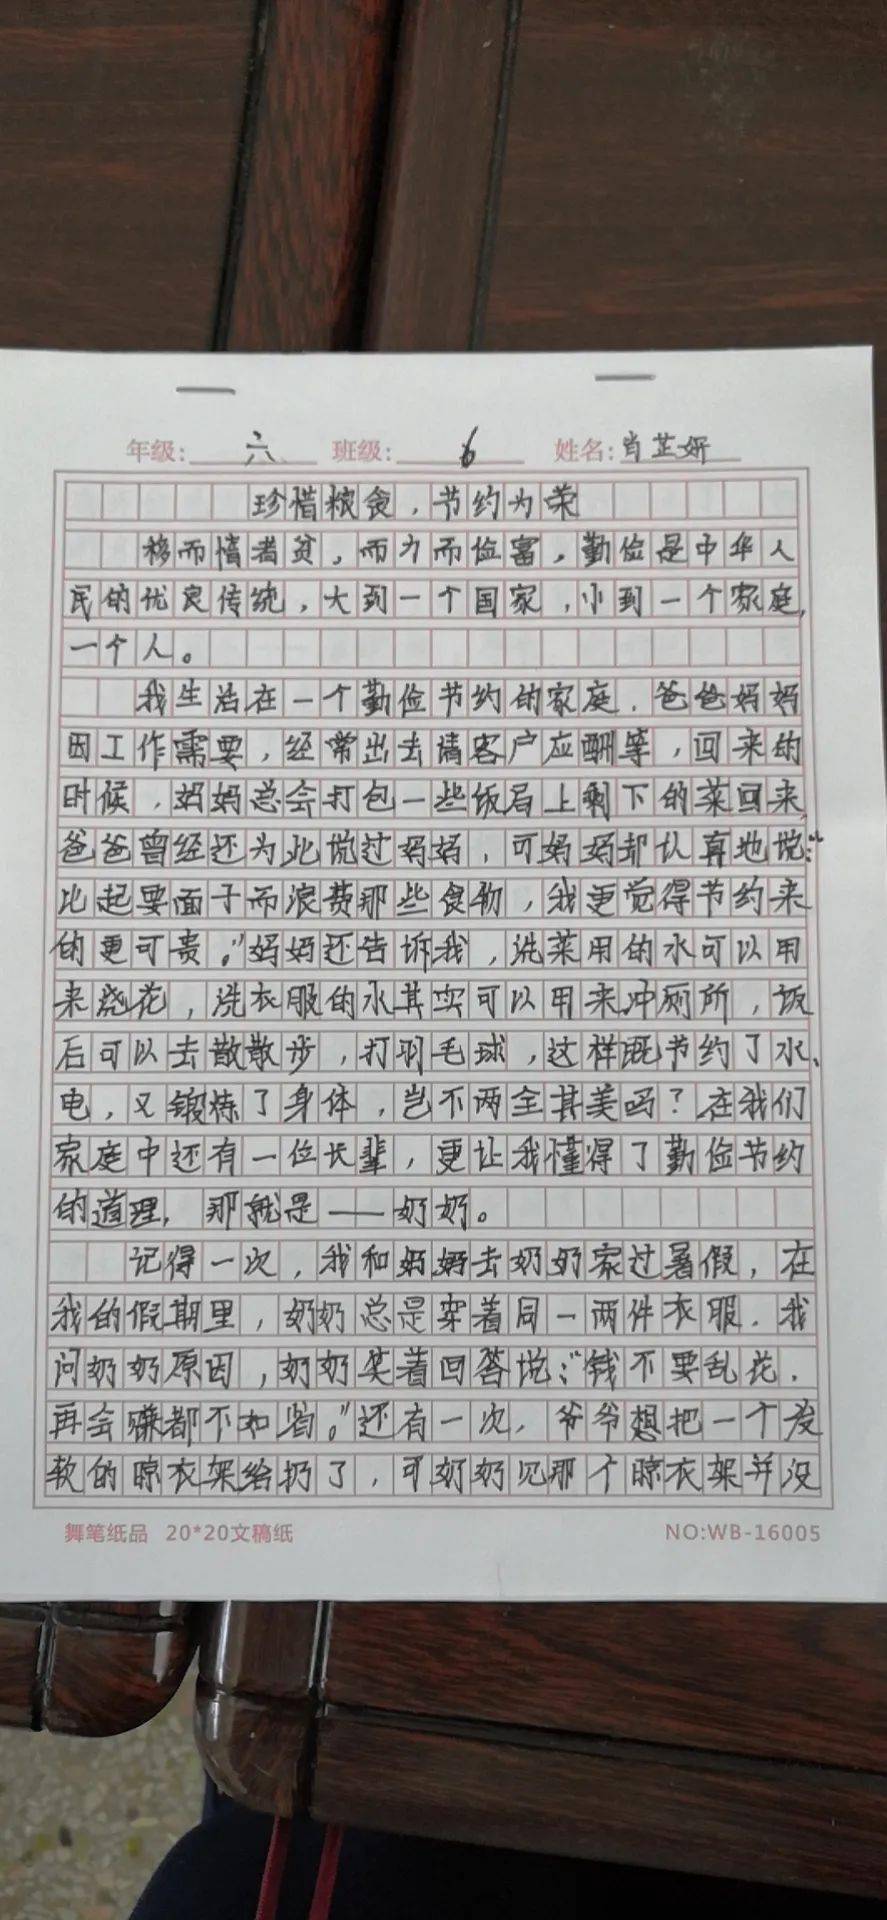 年级: 六 班级: 6 姓名: 肖芷妍
珍惜粮食，节约为荣
侈而惰者贫，而力而俭富，勤俭是中华人
民的优良传统，大到一个国家，小到一个家庭，
一个人。
我生活在一个勤俭节约的家庭，爸爸妈妈
因工作需要，经常出去请客户应酬等，回来的
时候，妈妈总会打包一些饭局上剩下的菜回来，
爸爸曾经还为此说过妈妈，可妈妈却认真地说：“
比起要面子而浪费那些食物，我更觉得节约来
的更可贵。”妈妈还告诉我，洗菜用的水可以用
来浇花，洗衣服的水其实可以用来冲厕所，饭
后可以去散散步，打羽毛球，这样既节约了水、
电，又锻炼了身体，岂不两全其美吗？在我们
家庭中还有一位长辈，更让我懂得了勤俭节约
的道理，那就是——奶奶。
记得一次，我和妈妈去奶奶家过暑假，在
我的假期里，奶奶总是穿着同一两件衣服．我
问奶奶原因，奶奶笑着回答说：“钱不要乱花．
再会赚都不如省。”还有一次，爷爷想把一个发
软的晾衣架给扔了，可奶奶见那个晾衣架并没
舞笔纸品 20*20文稿纸 NO:WB-16005